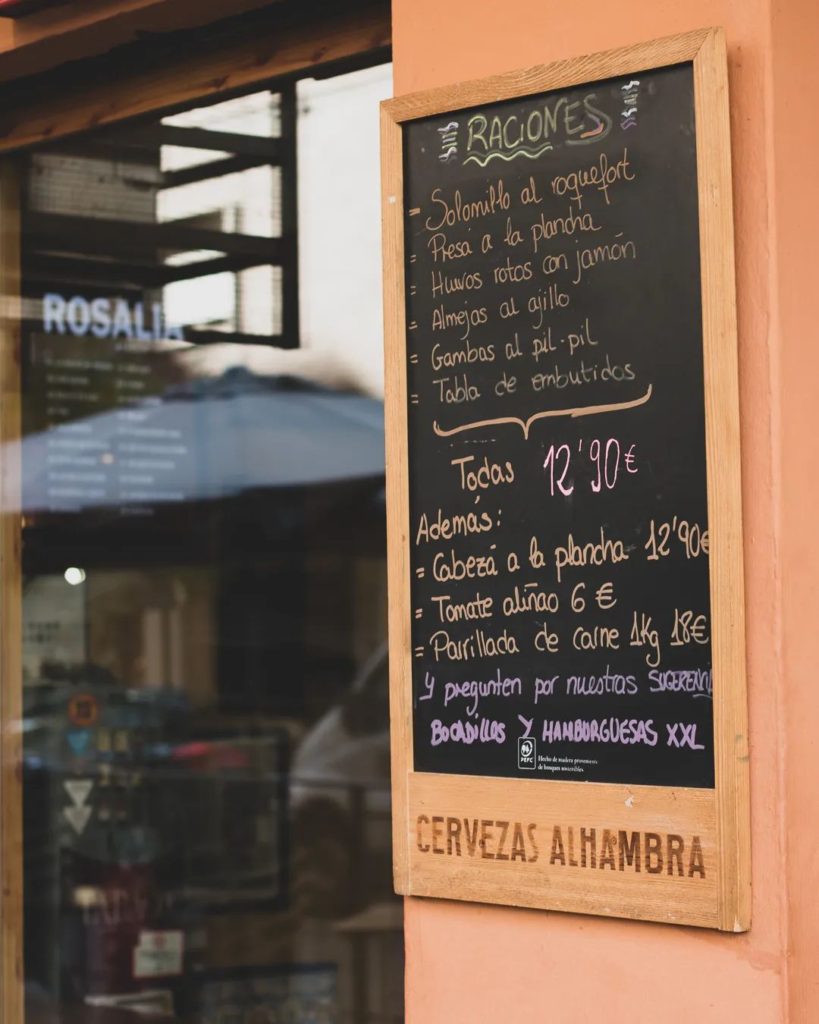 RACIONES
= Solomillo al roquefort
= Presa a la plancha
= Huevos rotos con jamón
= Almejas al ajillo
= Gambas al pil-pil
= Tabla de embutidos
Todas 12'90€
Además:
= Cabezá a la plancha 12'90€
= Tomate aliñao 6 €
= Parrillada de carne 1Kg 18€
Y pregunten por nuestras
BOCADILLOS Y HAMBURGUESAS XXL
PEFC
Hecho de madera proveniente
de bosques sostenibles.
CERVEZAS ALHAMBRA
ROSALIA